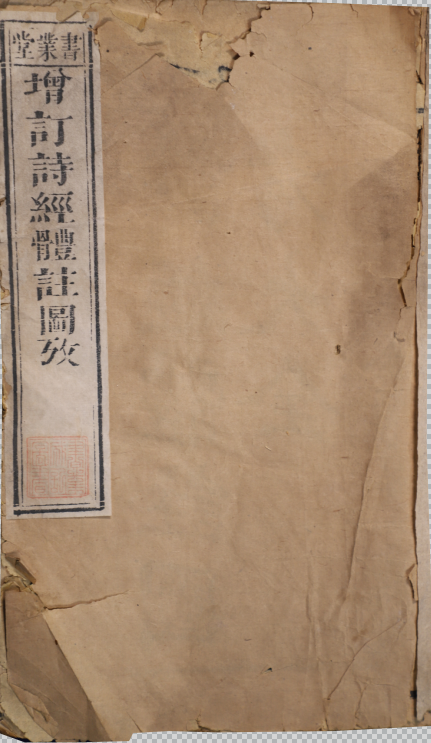 書業堂
增訂詩經體註圖攷